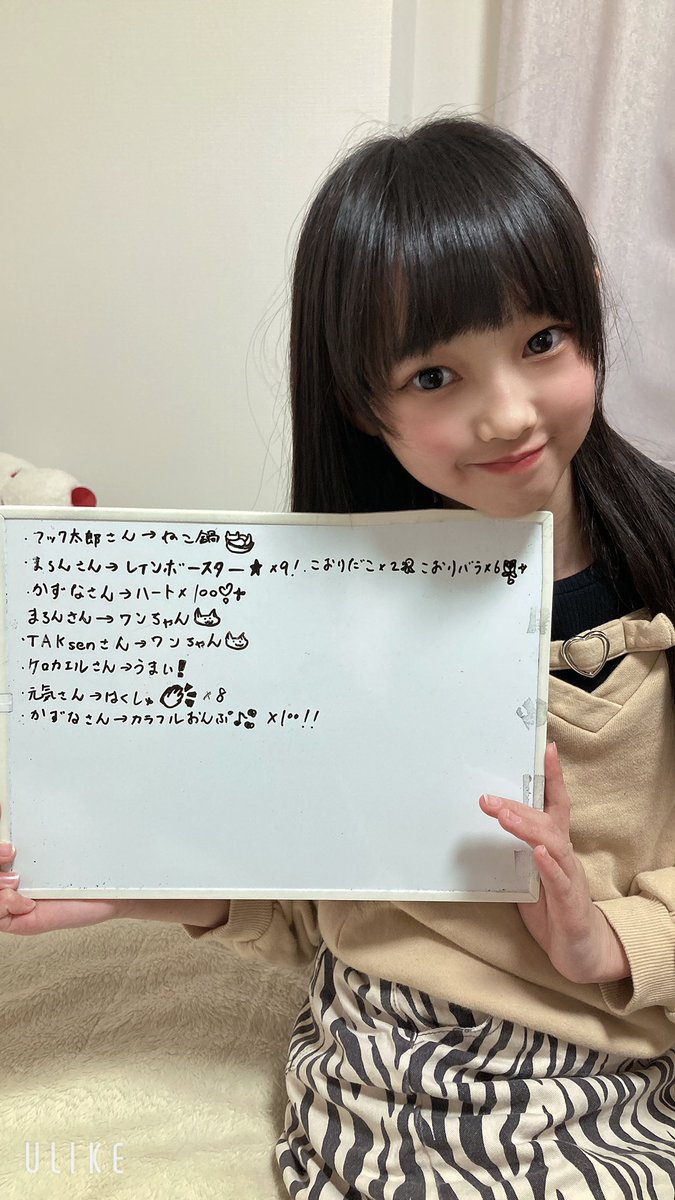 ・フック太郎さん→ねこ鍋
・まろんさん→レインボースター★×9!.こおりだこ×2 こおりバラ×6
・かずなさん→ハート×100♡
まろんさん→ワンちゃん
・TAKsenさん→ワンちゃん
・ケロカエルさん→うまい!
・元気さん→はくしゅ ×8
・かずなさん→カラフルおんぷ♪ ×100!!
ULIKE